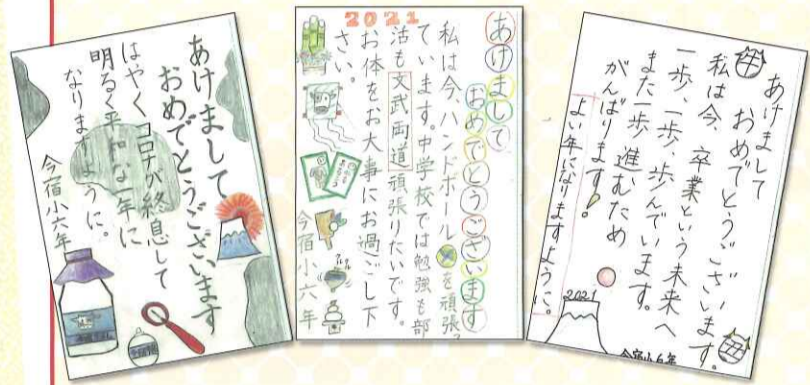 あけまして
おめでとうございます
はやくコロナが終息して
明るく平和な一年に
なりますように。
今宿小六年
2021
あけまして
おめでとうございます
私は今、ハンドボールを頑張っ
ています。中学校では勉強も部
活も文武両道頑張りたいです。
お体をお大事にお過ごし下
さい。
今宿小六年
あけまして
おめでとうございます。
私は今、卒業という未来へ
一歩、一歩、歩んでいます。
また一歩進むため
がんばります!
よい年になりますように。
2021
今宿小6年